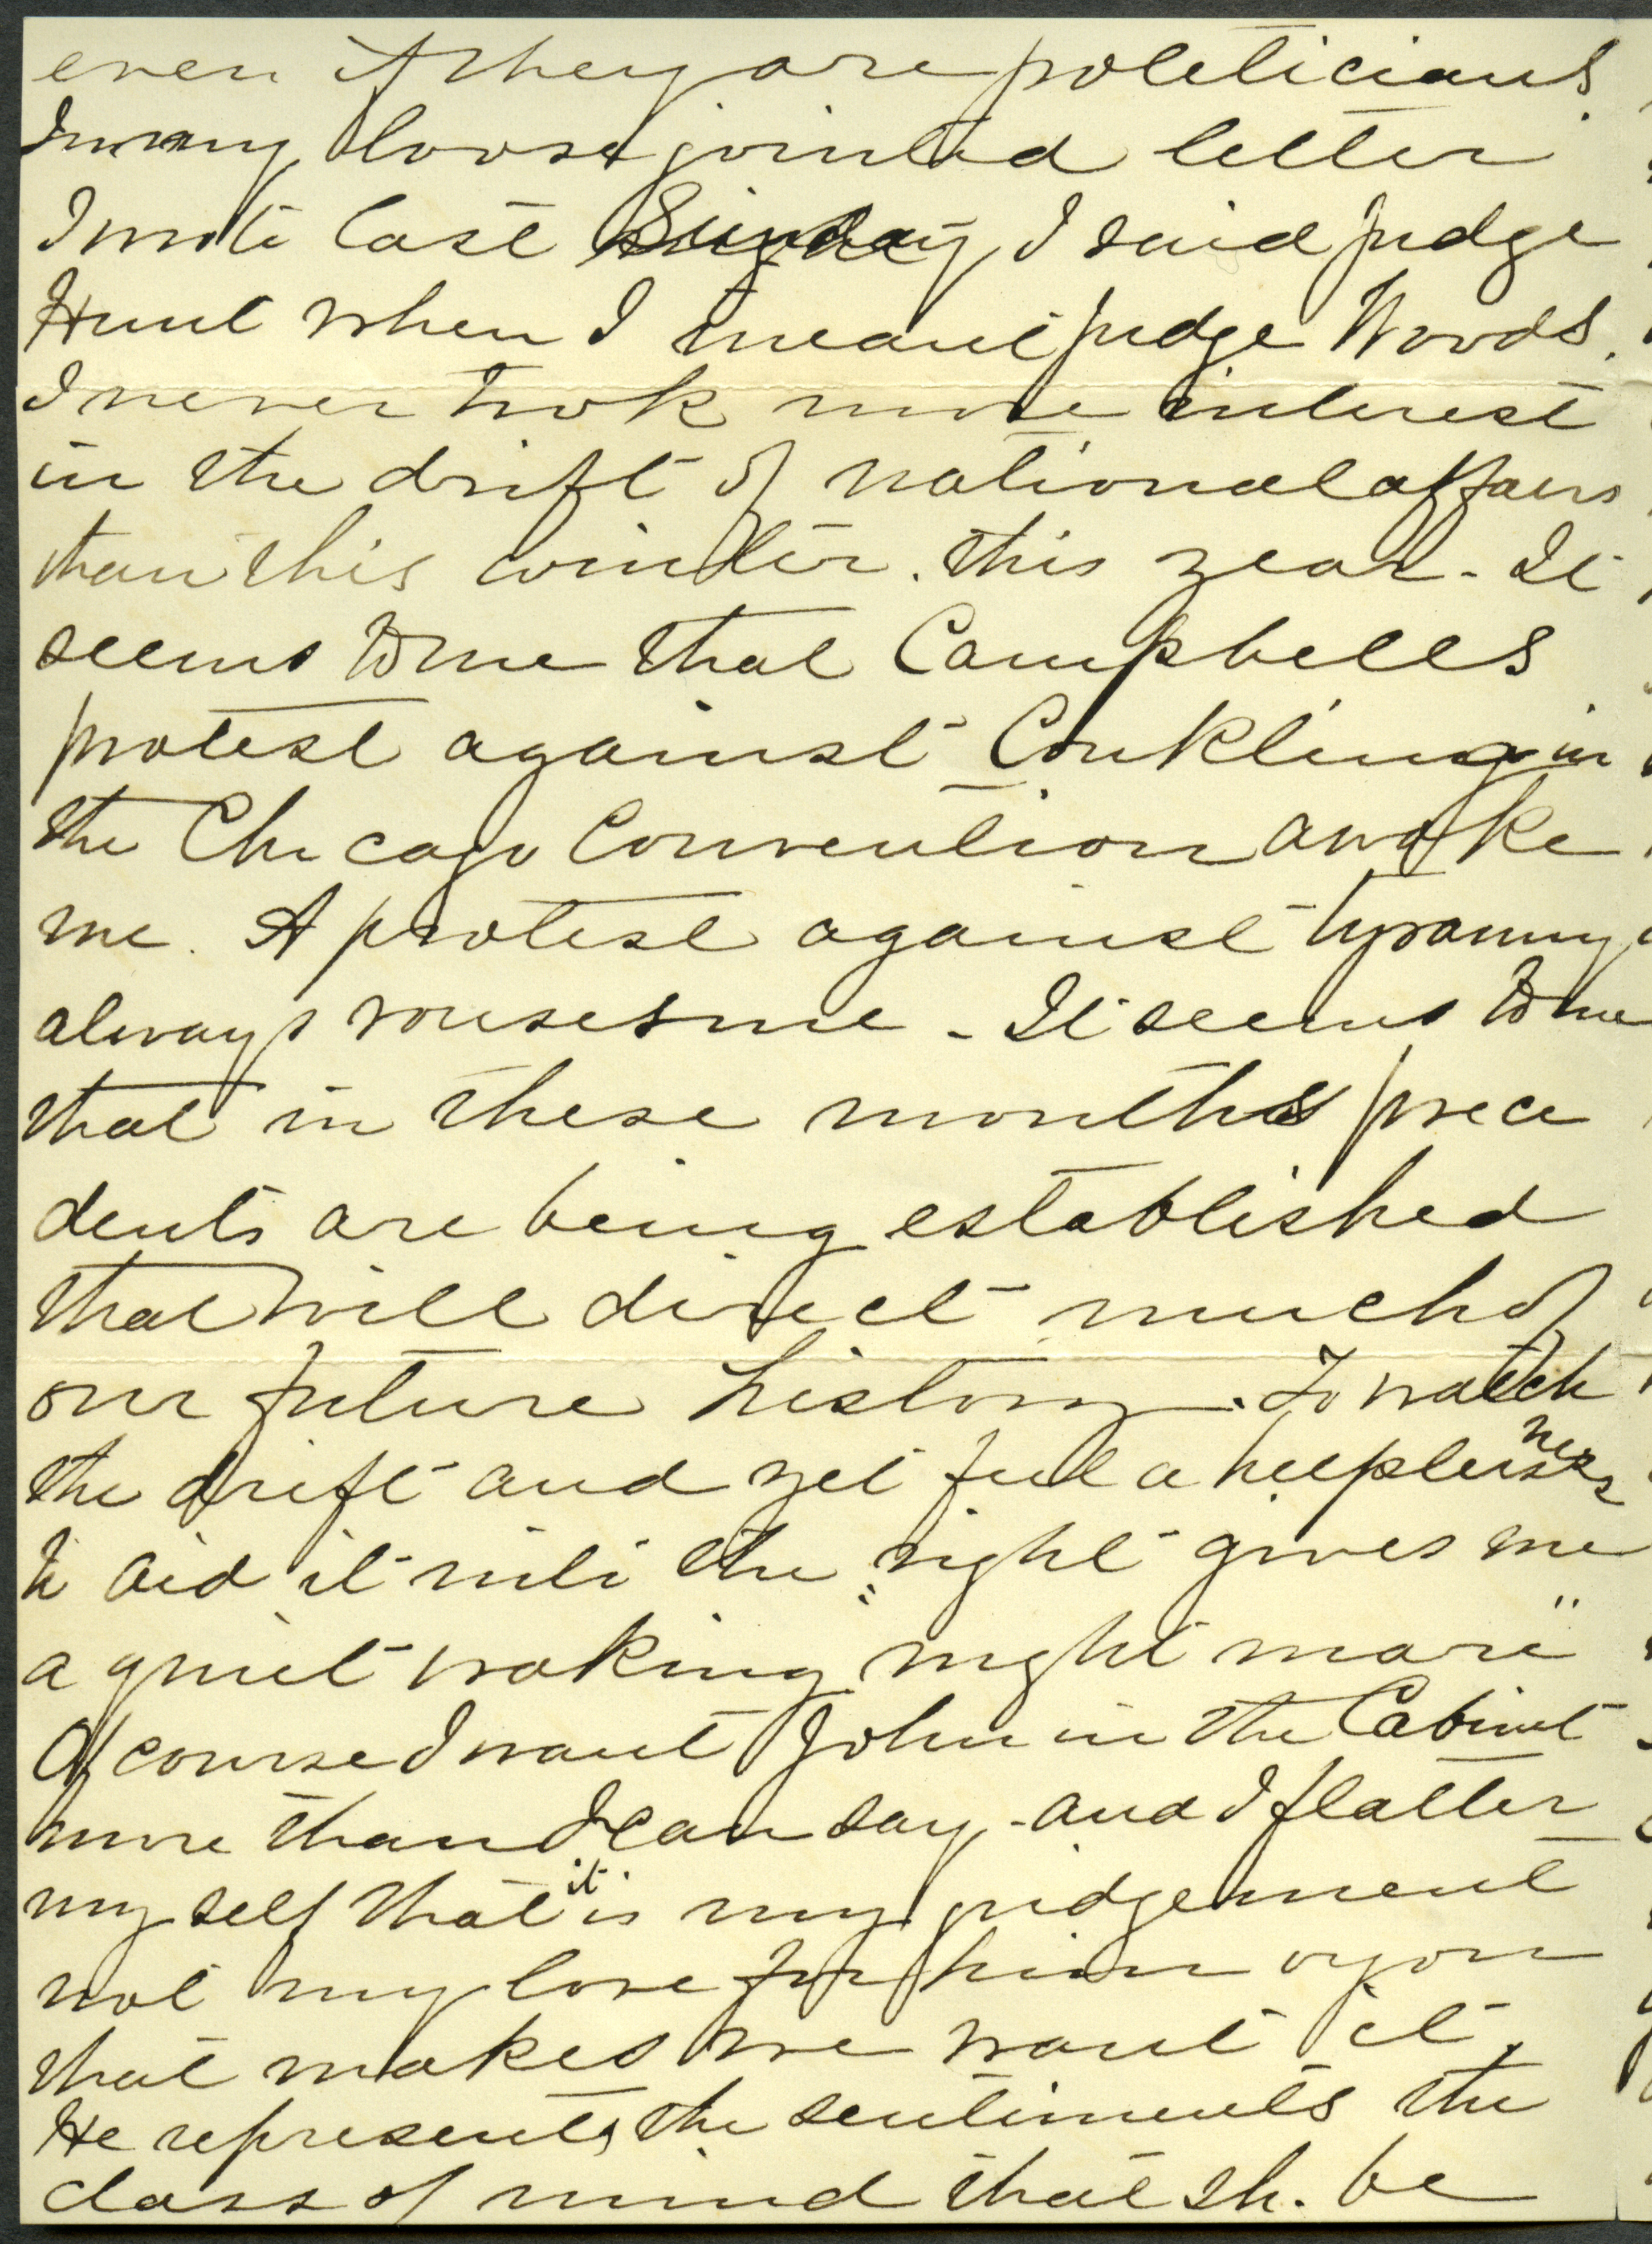 even if they are politicians.
In my loose jointed letter
I wrote last Sunday, I said Judge
Hunt when I meant Judge Woods.
I never took more interest
in the drift of national affairs
than this winter. this year - It
seems to me that Campbells
protest against Conkling in
the Chicago Convention awoke
me. A protest against tyranny
always rouses me - It seems to me
that in these months prece
dents are being established
that will direct much of
our future history. To watch
the drift and yet feel a helplessness
to aid it into the right gives me
a quiet waking "night mare"
Of course I want John in the Cabinet
more than I can say - and I flatter
my self that it is my judgement
not my love for him or you
that makes me want it.
He represents the sentiments the
class of mind that sh. be